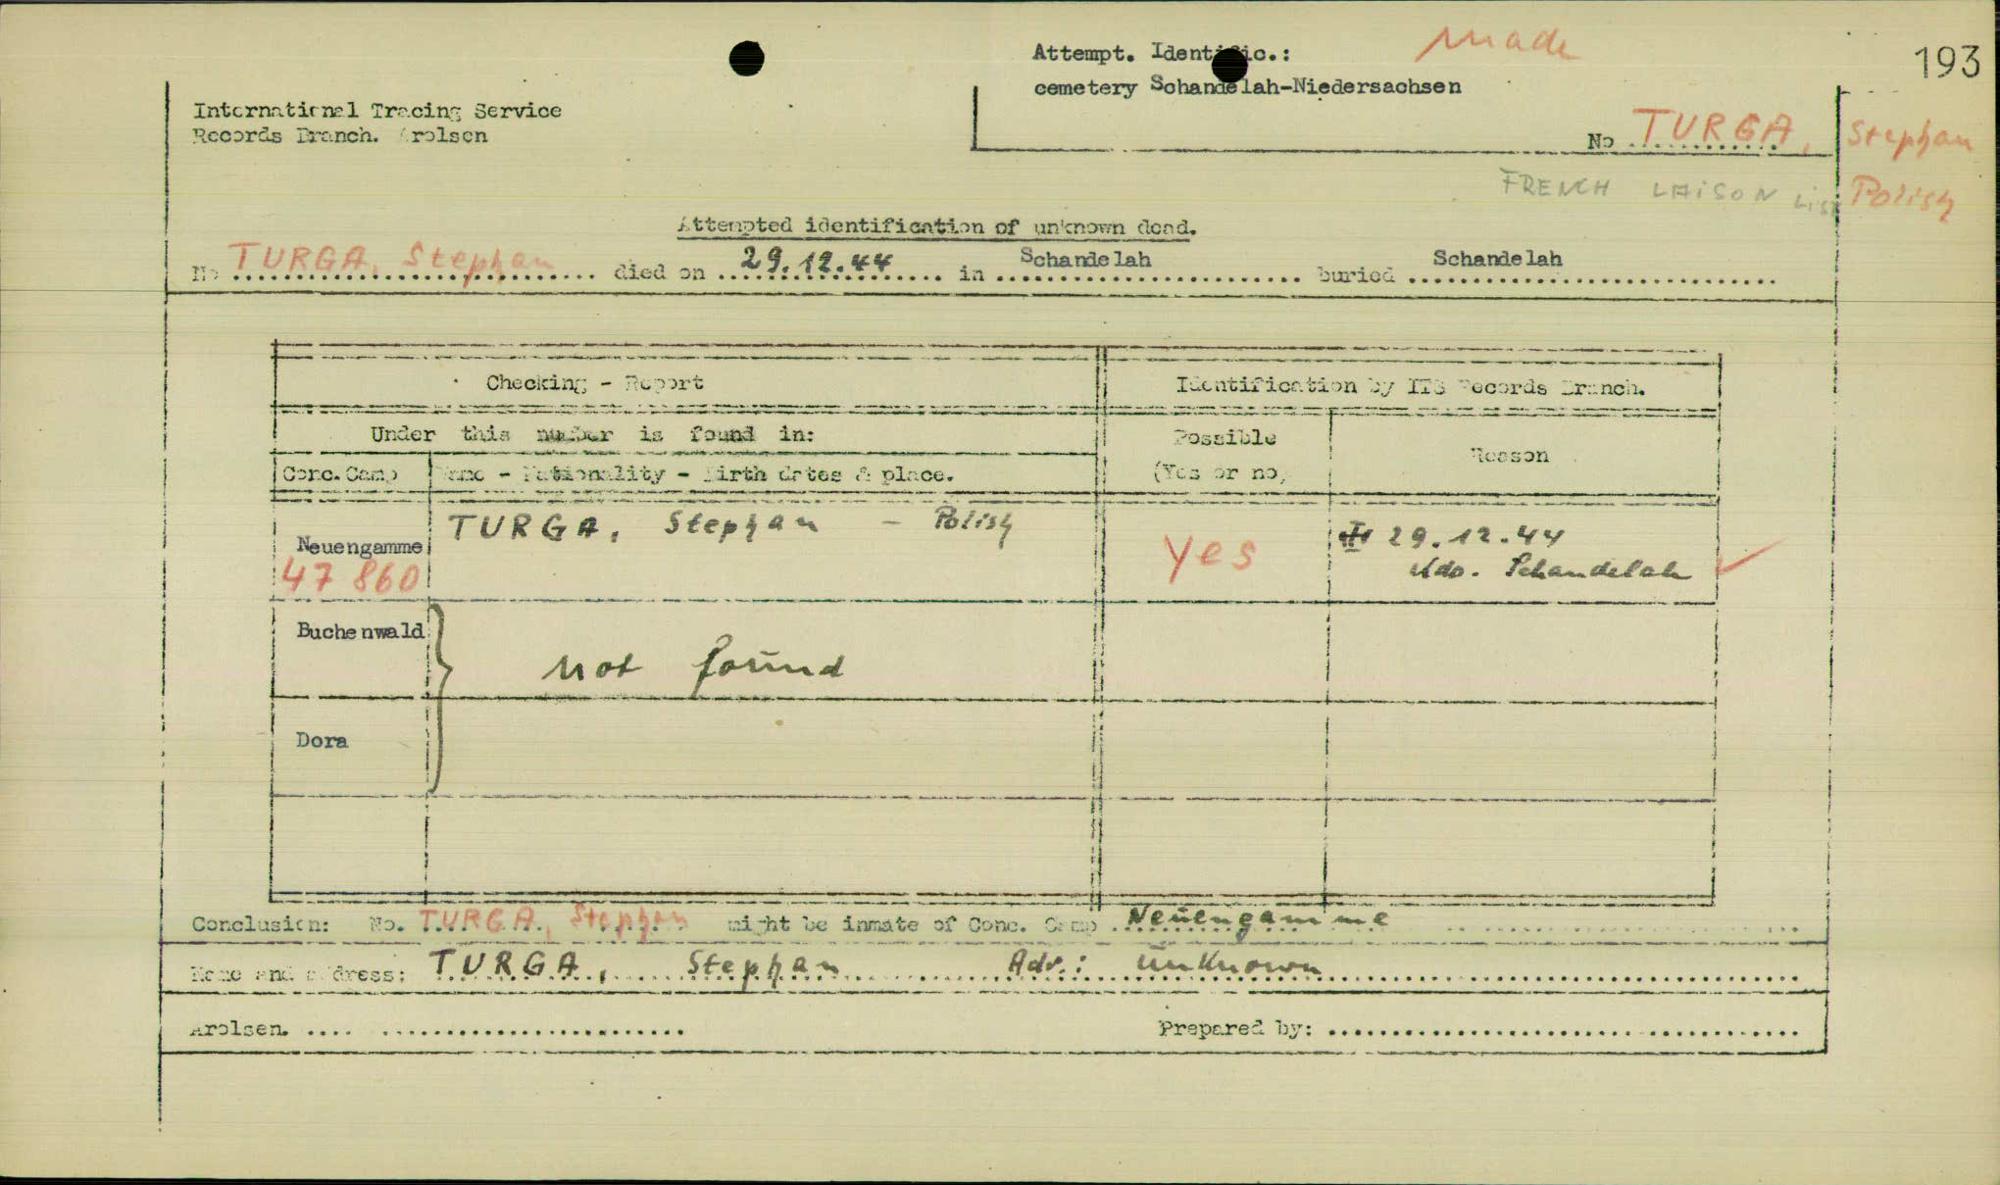 193
Attempt. Identific.: made
cemetery Schandelah-Niedersachsen
International Tracing Service
Records Branch. Arolsen
No TURGA, Stephan
FRENCH LAISON List Polish
Attempted identification of unknown dead.
No TURGA, Stephan died on 29.12.44 in Schandelah buried Schandelah
Checking - Report
Identification by ITS Records Branch.
Under this number is found in:
Possible
(Yes or no)
Reason
Conc. Camp
Name - Nationality - Birth dates & place.
Neuengamme
47 860
TURGA, Stephan - Polish
yes
29.12.44
Kdo. Schandelah
Buchenwald
not found
Dora
Conclusion: No. TURGA, Stephan might be inmate of Conc. Camp Neuengamme
Name and address: TURGA, Stephan Adr.: unknown
Arolsen.
Prepared by: